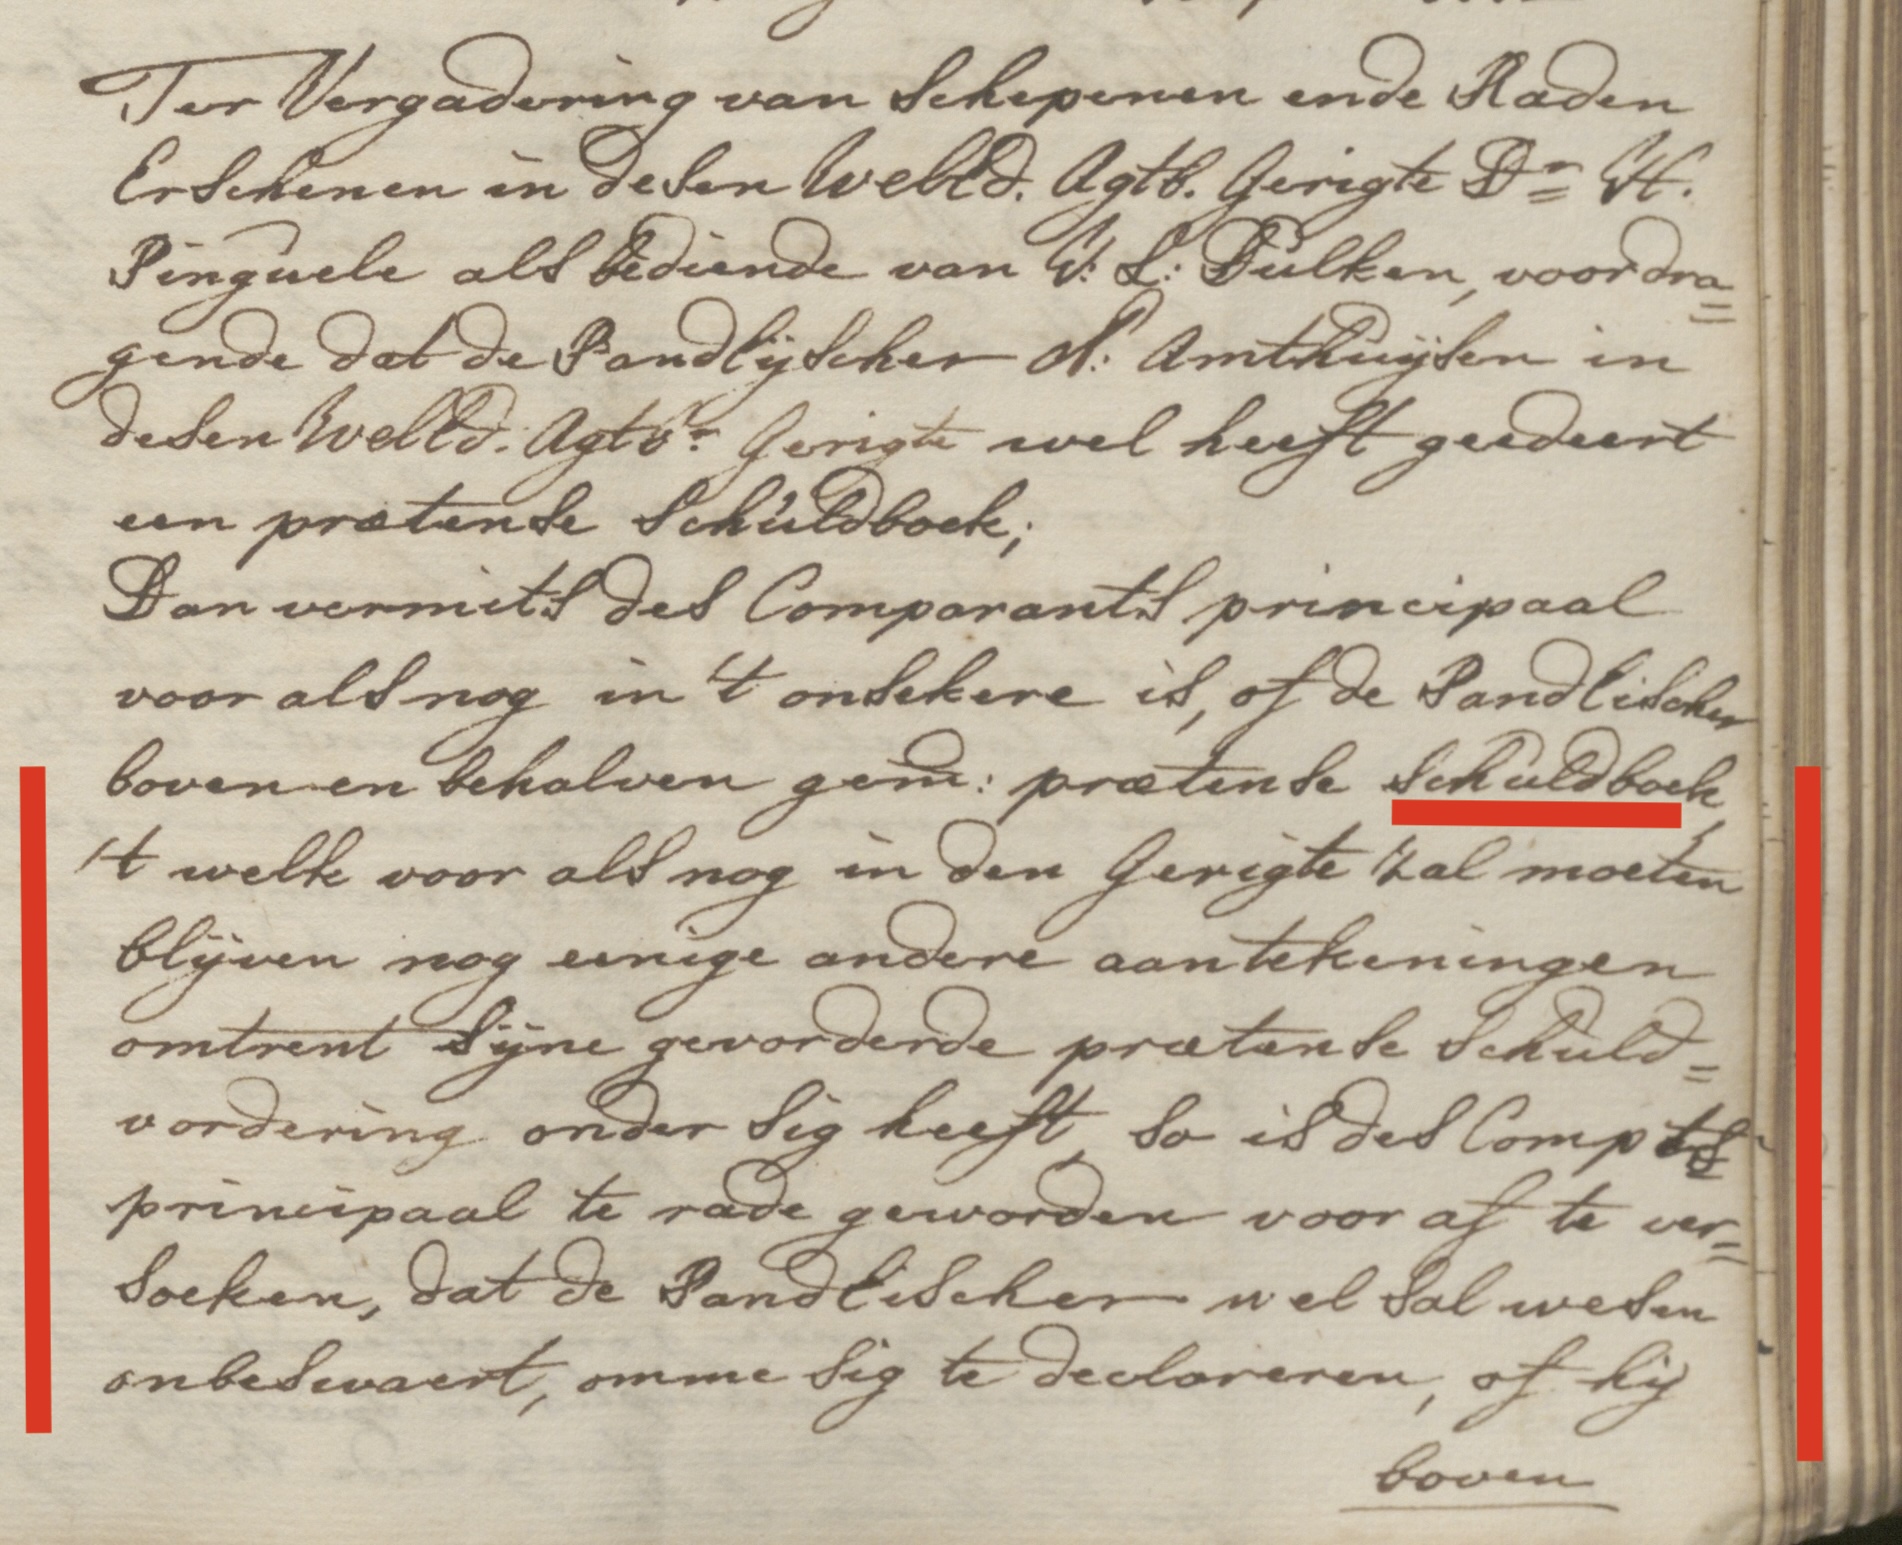 Ter Vergadering van Schepenen ende Raden
Erschenen in desen WelEd. Agtb. Gerigte Dr. H.
Pinguele als bediende van V: L: Dulken, voordra=
gende dat de Pandlijscher A: Amthuijsen in
desen WelEd. Agtbr. Gerigte wel heeft geedeert
een prætense Schuldboek;
Dan vermits des Comparants principaal
voor als nog in 't onsekere is, of de Pandlischer
boven en behalven gem: prætense Schuldboek,
't welk voor als nog in den Gerigte zal moeten
blijven nog eenige andere aantekeningen
omtrent Sijne gevorderde prætense Schuld=
vordering onder Sig heeft, So is des Compts
principaal te rade geworden voor af te ver=
soeken, dat de Pandlischer wel Sal wesen
onbeswaert, omme Sig te declareren, of hij
boven